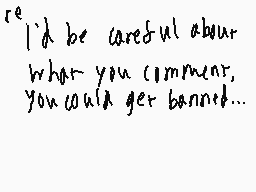 re
I'd be careful about
what you comment,
you could get banned...